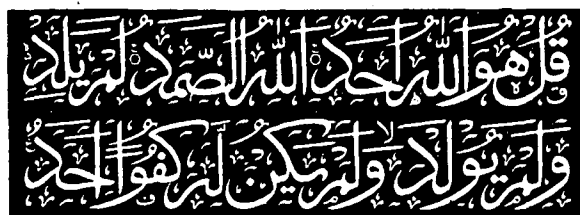 قُلْ هُوَ اللّٰهُ أَحَدٌ اللّٰهُ الصَّمَدُ لَمْ يَلِدْ
وَلَمْ يُولَدْ وَلَمْ يَكُنْ لَهُ كُفُوًا أَحَدٌ